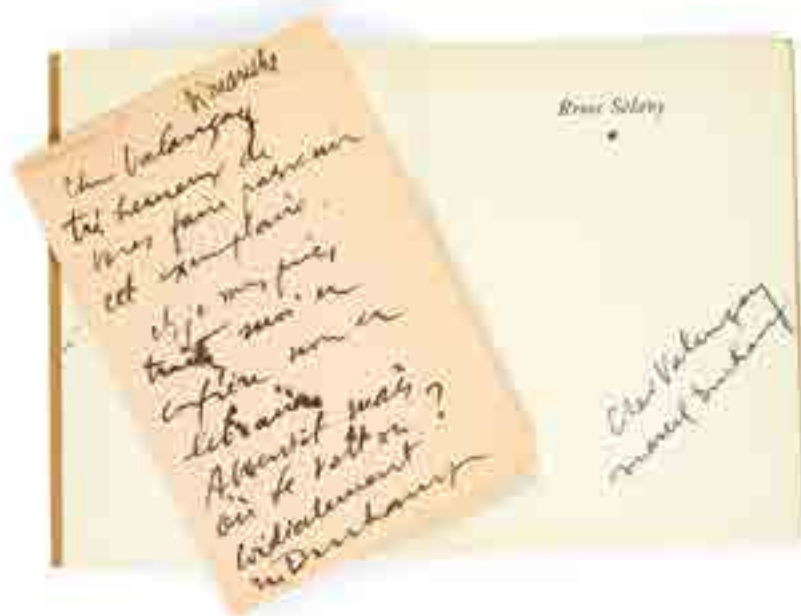 Dimanche
Cher Valançay
très heureux de
vous faire parvenir
cet exemplaire.
et je vous prie,
traitez moi en
confrère non en
libraire
mais
où se voit on ?
Cordialement
M Duchamp
Rrose Sélavy
Cher Valançay
Marcel Duchamp